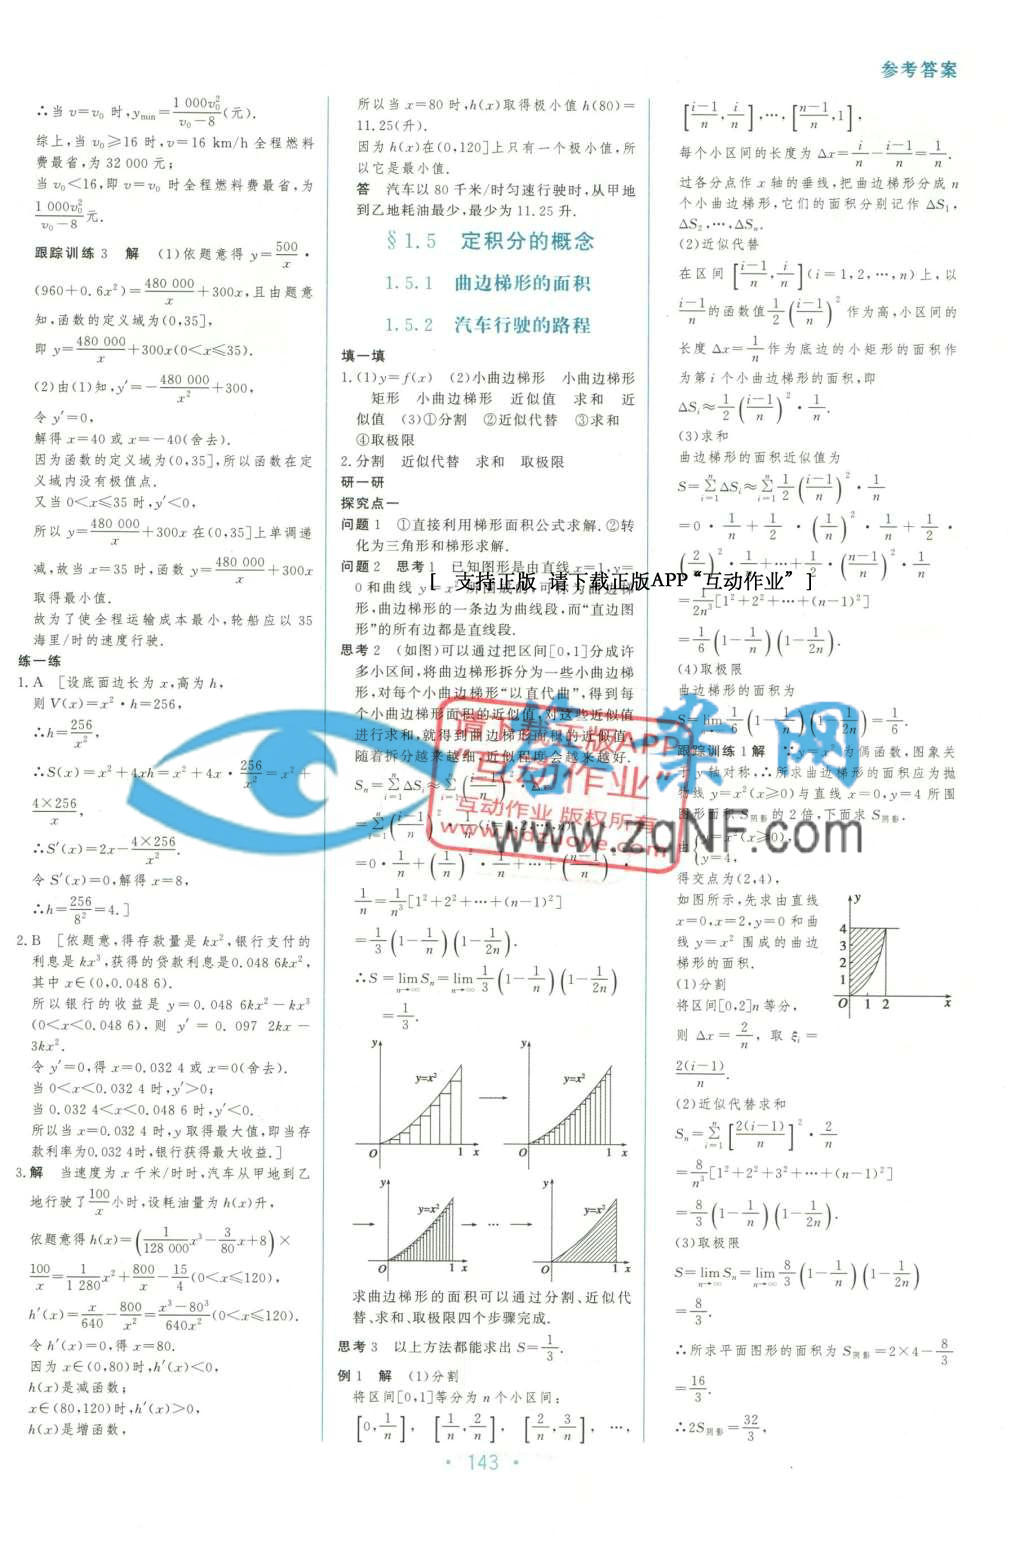 参考答案
∴当 v=v₀ 时,yₘᵢₙ=1 000v₀²/(v₀-8)(元).
综上,当 v₀≥16 时,v=16 km/h 全程燃料
费最省,为 32 000 元;
当 v₀<16,即 v=v₀ 时全程燃料费最省,为
1 000v₀²/(v₀-8)元.
跟踪训练 3 解 (1)依题意得 y=500/x·
(960+0.6x²)=480 000/x+300x,且由题意
知,函数的定义域为(0,35],
即 y=480 000/x+300x(0<x≤35).
(2)由(1)知,y′=-480 000/x²+300,
令 y′=0,
解得 x=40 或 x=-40(舍去).
因为函数的定义域为(0,35],所以函数在定
义域内没有极值点.
又当 0<x≤35 时,y′<0,
所以 y=480 000/x+300x 在(0,35]上单调递
减,故当 x=35 时,函数 y=480 000/x+300x
取得最小值.
故为了使全程运输成本最小,轮船应以 35
海里/时的速度行驶.
练一练
1.A [设底面边长为 x,高为 h,
则 V(x)=x²·h=256,
∴h=256/x²,
∴S(x)=x²+4xh=x²+4x·256/x²=x²+
4×256/x,
∴S′(x)=2x-4×256/x².
令 S′(x)=0,解得 x=8,
∴h=256/8²=4.]
2.B [依题意,得存款量是 kx²,银行支付的
利息是 kx³,获得的贷款利息是0.048 6kx²,
其中 x∈(0,0.048 6).
所以银行的收益是 y=0.048 6kx²-kx³
(0<x<0.048 6),则 y′=0.097 2kx-
3kx².
令 y′=0,得 x=0.032 4 或 x=0(舍去).
当 0<x<0.032 4 时,y′>0;
当 0.032 4<x<0.048 6 时,y′<0.
所以当 x=0.032 4 时,y 取得最大值,即当存
款利率为0.032 4时,银行获得最大收益.]
3.解 当速度为 x 千米/时时,汽车从甲地到乙
地行驶了100/x小时,设耗油量为 h(x)升,
依题意得 h(x)=(1/128 000 x³-3/80 x+8)×
100/x=1/1 280 x²+800/x-15/4(0<x≤120),
h′(x)=x/640-800/x²=(x³-80³)/640x²(0<x≤120).
令 h′(x)=0,得 x=80.
因为 x∈(0,80)时,h′(x)<0,
h(x)是减函数;
x∈(80,120)时,h′(x)>0,
h(x)是增函数,
所以当 x=80 时,h(x)取得极小值 h(80)=
11.25(升).
因为 h(x)在(0,120]上只有一个极小值,所
以它是最小值.
答 汽车以 80 千米/时匀速行驶时,从甲地
到乙地耗油最少,最少为 11.25 升.
§1.5 定积分的概念
1.5.1 曲边梯形的面积
1.5.2 汽车行驶的路程
填一填
1.(1)y=f(x) (2)小曲边梯形 小曲边梯形
矩形 小曲边梯形 近似值 求和 近
似值 (3)①分割 ②近似代替 ③求和
④取极限
2.分割 近似代替 求和 取极限
研一研
探究点一
问题 1 ①直接利用梯形面积公式求解.②转
化为三角形和梯形求解.
问题 2 思考 1 已知图形是由直线 x=1,y=
[ 支持正版 请下载正版APP“互动作业” ]
0和曲线 y=x² 所围成的,可称为曲边梯
形,曲边梯形的一条边为曲线段,而“直边图
形”的所有边都是直线段.
思考 2 (如图)可以通过把区间[0,1]分成许
多小区间,将曲边梯形拆分为一些小曲边梯
形,对每个小曲边梯形“以直代曲”,得到每
个小曲边梯形面积的近似值,对这些近似值
进行求和,就得到曲边梯形面积的近似值,
随着拆分越来越细,近似程度会越来越好.
Sₙ=∑ᵢ₌₁ⁿΔSᵢ≈∑ᵢ₌₁ⁿ
=∑ᵢ₌₁ⁿ((i-1)/n)²·1/n(i=1,2,…,n)
=0·1/n+(1/n)²·1/n+…+((n-1)/n)²·
1/n=1/n³[1²+2²+…+(n-1)²]
=1/3(1-1/n)(1-1/2n).
∴S=lim(n→∞)Sₙ=lim(n→∞)1/3(1-1/n)(1-1/2n)
=1/3.
y y=x² O 1 x
y y=x² O 1 x
y y=x² O 1 x
… y y=x² O 1 x
求曲边梯形的面积可以通过分割、近似代
替、求和、取极限四个步骤完成.
思考 3 以上方法都能求出 S=1/3.
例 1 解 (1)分割
将区间[0,1]等分为 n 个小区间:
[0,1/n],[1/n,2/n],[2/n,3/n],…,
[(i-1)/n,i/n],…,[(n-1)/n,1],
每个小区间的长度为 Δx=i/n-(i-1)/n=1/n.
过各分点作 x 轴的垂线,把曲边梯形分成 n
个小曲边梯形,它们的面积分别记作 ΔS₁,
ΔS₂,…,ΔSₙ.
(2)近似代替
在区间 [(i-1)/n,i/n](i=1,2,…,n)上,以
(i-1)/n的函数值1/2((i-1)/n)²作为高,小区间的
长度 Δx=1/n作为底边的小矩形的面积作
为第 i 个小曲边梯形的面积,即
ΔSᵢ≈1/2((i-1)/n)²·1/n.
(3)求和
曲边梯形的面积近似值为
S=∑ᵢ₌₁ⁿΔSᵢ≈∑ᵢ₌₁ⁿ1/2((i-1)/n)²·1/n
=0·1/n+1/2·(1/n)²·1/n+1/2·
(2/n)²·1/n+…+1/2·((n-1)/n)²·1/n
=1/2n³[1²+2²+…+(n-1)²]
=1/6(1-1/n)(1-1/2n).
(4)取极限
曲边梯形的面积为
S=lim(n→∞)1/6(1-1/n)(1-1/2n)=1/6.
跟踪训练 1 解 ∵y=x² 为偶函数,图象关
于 y 轴对称,∴所求曲边梯形的面积应为抛
物线 y=x²(x≥0)与直线 x=0,y=4 所围
图形面积 S阴影的 2 倍,下面求 S阴影.
由{y=x²(x≥0),
y=4,
得交点为(2,4),
如图所示,先求由直线
x=0,x=2,y=0 和曲
线 y=x² 围成的曲边
梯形的面积.
y 4 3 2 1 O 1 2 x
(1)分割
将区间[0,2]n等分,
则 Δx=2/n,取 ξᵢ=
2(i-1)/n.
(2)近似代替求和
Sₙ=∑ᵢ₌₁ⁿ[2(i-1)/n]²·2/n
=8/n³[1²+2²+3²+…+(n-1)²]
=8/3(1-1/n)(1-1/2n).
(3)取极限
S=lim(n→∞)Sₙ=lim(n→∞)8/3(1-1/n)(1-1/2n)
=8/3.
∴所求平面图形的面积为 S阴影=2×4-8/3
=16/3.
∴2S阴影=32/3,
请下载正版APP
“互动作业”
互动作业 版权所有
www.zqNF.com
·143·